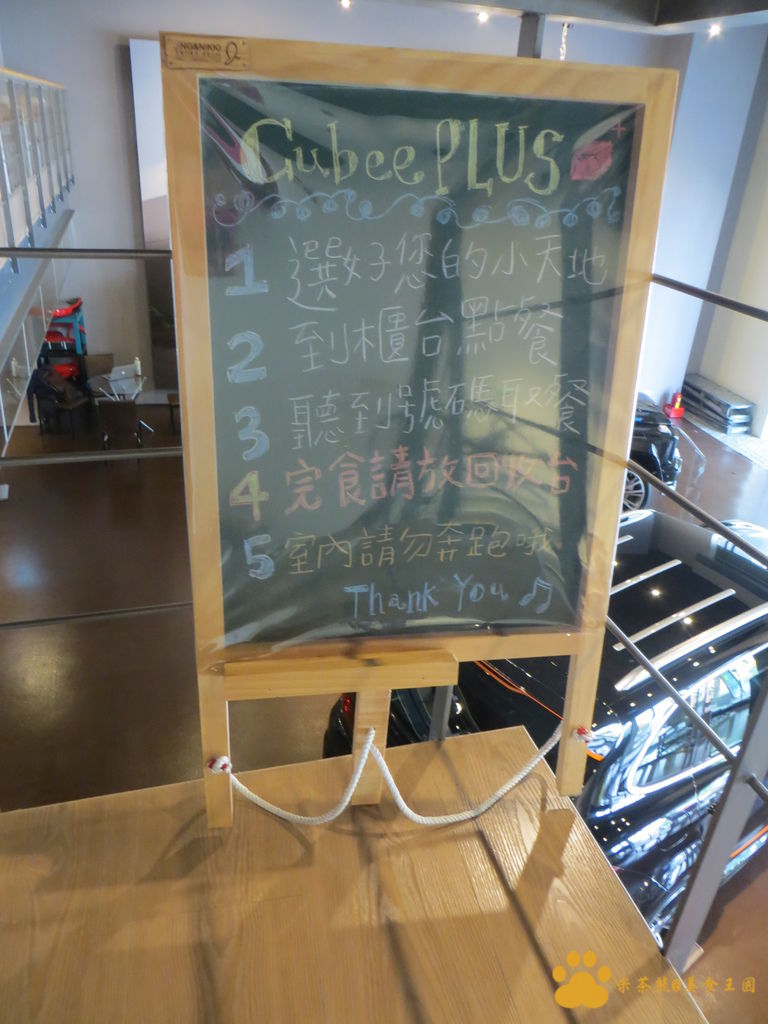 Cubee PLUS
1 選好您的小天地
2 到櫃台點餐
3 聽到號碼取餐
4 完食請放回收台
5 室內請勿奔跑哦
Thank You ♫
米茶熊の美食王囯